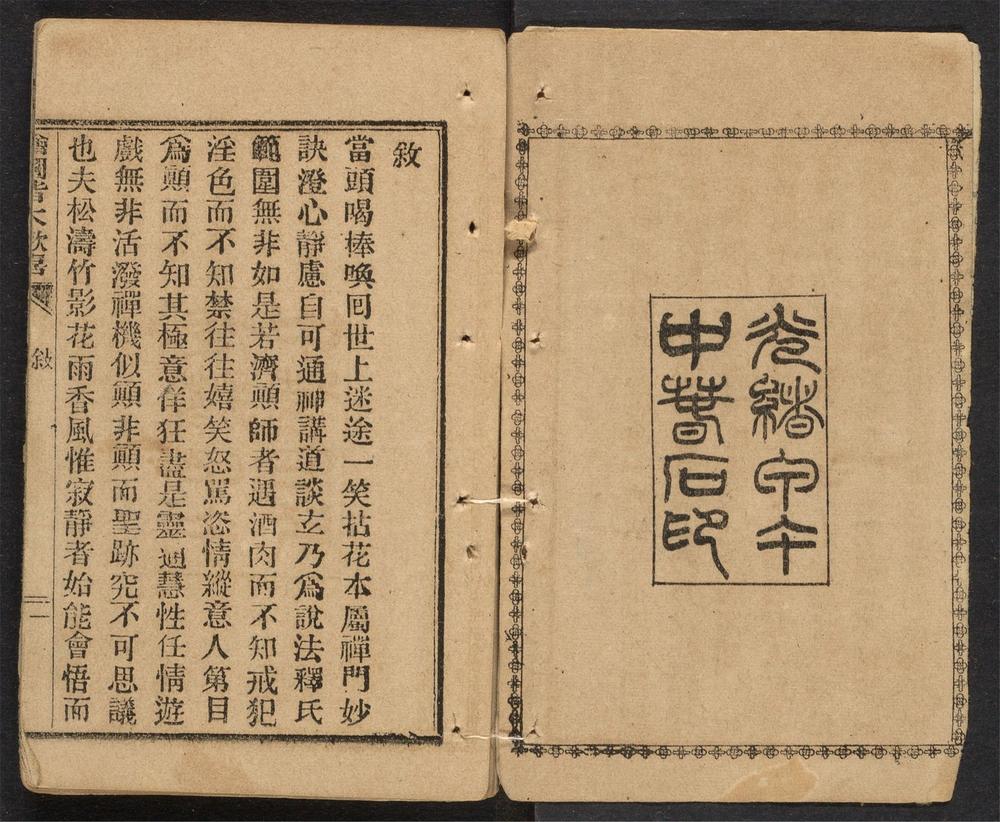 光緒甲午
中春石印
敘
當頭喝棒喚囘世上迷途一笑拈花本屬禪門妙
訣澄心靜慮自可通神講道談玄乃爲說法釋氏
範圍無非如是若濟顚師者遇酒肉而不知戒犯
淫色而不知禁往往嬉笑怒罵恣情縱意人第目
爲顚而不知其極意佯狂盡是靈通慧性任情遊
戲無非活潑禪機似顚非顚而聖跡究不可思議
也夫松濤竹影花雨香風惟寂靜者始能會悟而
繪圖皆大歡喜 敘 一